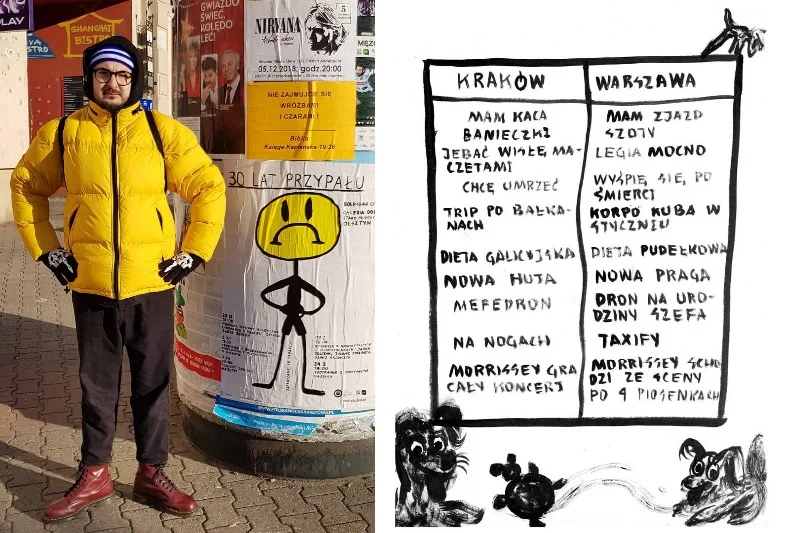 PLAY
SHANGHAI
BISTRO
GWIAZDO
ŚWIEĆ,
KOLĘDO
LEĆ!
NIRVANA
5
05.12.2018, godz. 20:00
NIE ZAJMUJCIE SIĘ
WRÓŻBAMI
I CZARAMI!
Biblia
Księga Kapłańska 19:26
30 LAT PRZYPAŁU
OLSZTYN
KRAKÓW
MAM KACA
BANIECZKI
JEBAĆ WISŁĘ MA-
CZETAMI
CHCĘ UMRZEĆ
TRIP PO BAŁKA-
NACH
DIETA GALICYJSKA
NOWA HUTA
MEFEDRON
NA NOGACH
MORRISSEY GRA
CAŁY KONCERT
WARSZAWA
MAM ZJAZD
SZOTY
LEGIA MOCNO
WYŚPIĘ SIĘ PO
ŚMIERCI
KORPO KUBA W
STYCZNIU
DIETA PUDEŁKOWA
NOWA PRAGA
DRON NA URO-
DZINY SZEFA
TAXIFY
MORRISSEY SCHO
DZI ZE SCENY
PO 4 PIOSENKACH